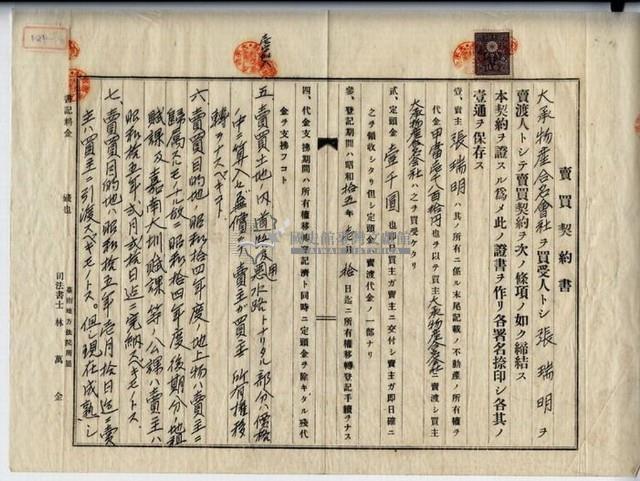 賣買契約書
大承物産合名會社ヲ買受人トシ張瑞明ヲ
賣渡人トシテ賣買契約ヲ次ノ條項ノ如ク締結ス
本契約ヲ證スル爲メ此ノ證書ヲ作リ各署名捺印シ各其ノ
壹通ヲ保存ス
壹、賣主張瑞明ハ其ノ所有ニ係ル末尾記載ノ不動產ノ所有權ヲ
代金 八百拾円也ヲ以テ買主大承物産合名会社ニ賣渡シ買主
大承物産合名会社ハ之ヲ買受ケタリ
貳、定頭金壹千圓也ヲ買主ガ賣主ニ交付シ賣主ガ即日確ニ
之ヲ領收シタリ但シ定頭金ハ賣渡代金ノ一部ナリ
參、登記期間ハ昭和拾五年 月拾日迄ニ所有權移轉登記手續ヲナス
四、代金支拂期間ハ所有權移轉登記濟ト同時ニ定頭金ヲ除キタル殘代
金ヲ支拂フコト
五、賣買土地ノ内道路及惡水路トナリタル部分ハ價格
中ニ算入セズ無價ニテ賣主ガ買主ニ所有權移
轉ヲナスベキコト
六、賣買目的地ノ昭和拾四年度ノ地上物ハ賣主ニ
歸屬スルモノナル故ニ昭和拾四年度後期分ノ地租
賦課及嘉南大圳賦課等ノ公課ハ賣主ハ
昭和拾五年貳月貳拾日迄ニ完納スベキモノトス
七、賣買目的地ハ昭和拾五年 月拾日迄ニ賣
主ハ買主ニ引渡スベキモノトス。但シ現在成熟シ
書記料金 錢也
嘉義地方法院所屬
司法書士 林萬金
國史館臺灣文獻館